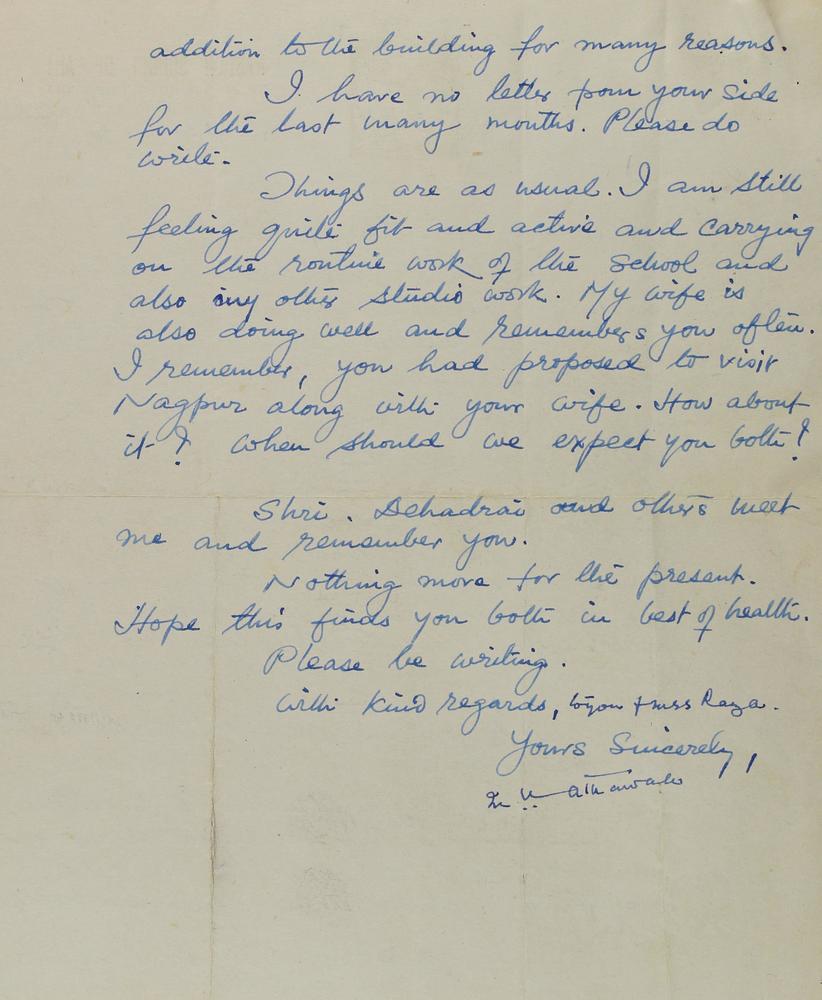 addition to the building for many reasons.
I have no letter from your side
for the last many months. Please do
write.
Things are as usual. I am still
feeling quite fit and active and carrying
on the routine work of the School and
also my other studio work. My wife is
also doing well and remembers you often.
I remember, you had proposed to visit
Nagpur along with your wife. How about
it? When should we expect you both?
Shri. Dehadrai and others meet
me and remember you.
Nothing more for the present.
Hope this finds you both in best of health.
Please be writing.
With kind regards, to you + mrs Raza.
Yours Sincerely,
Athawale